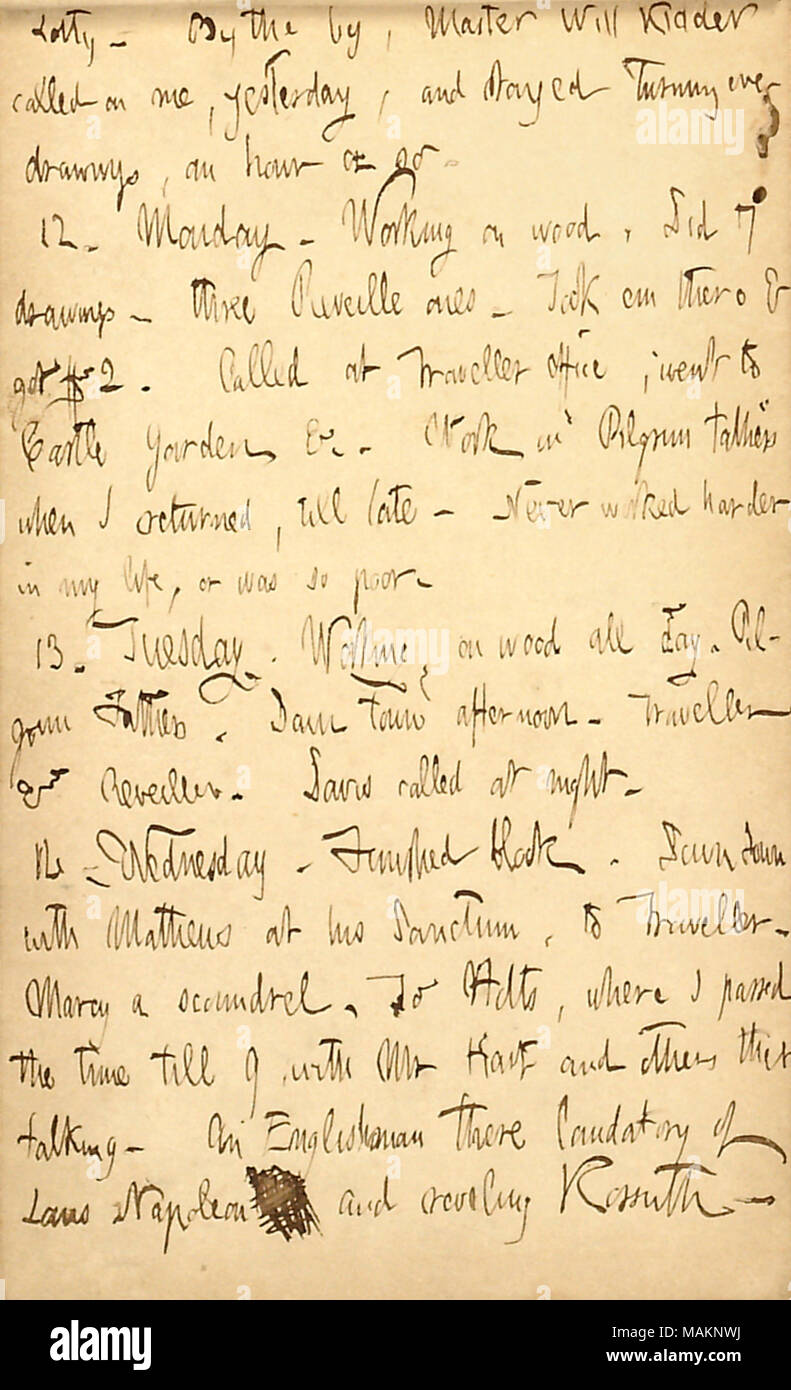 Lotty – By the by, Master Will Kidder
called on me, yesterday, and stayed turning over
drawings, an hour or so.
12. Monday – Working on wood. Did 7
drawings – three Reveille ones – Took em there &
got $2. Called at Traveller office, went to
Castle Garden, &c. Work on Pilgrim Fathers
when I returned, till late – Never worked harder
in my life, or was so poor –
13. Tuesday. Working on wood all day. Pil-
grim Fathers. Down town afternoon – Traveller
& Reveille. Davis called at night –
14 – Wednesday – Finished block. Down town
with Mathews at his Sanctum, to Traveller –
Marcy a scoundrel. To Holts, where I passed
the time till 9 with Mr Hart and others there
talking – An Englishman there laudatory of
Louis Napoleon and reveling Kossuth –
alamy
alamy
alamy
Image ID: MAKNWJ
www.alamy.com